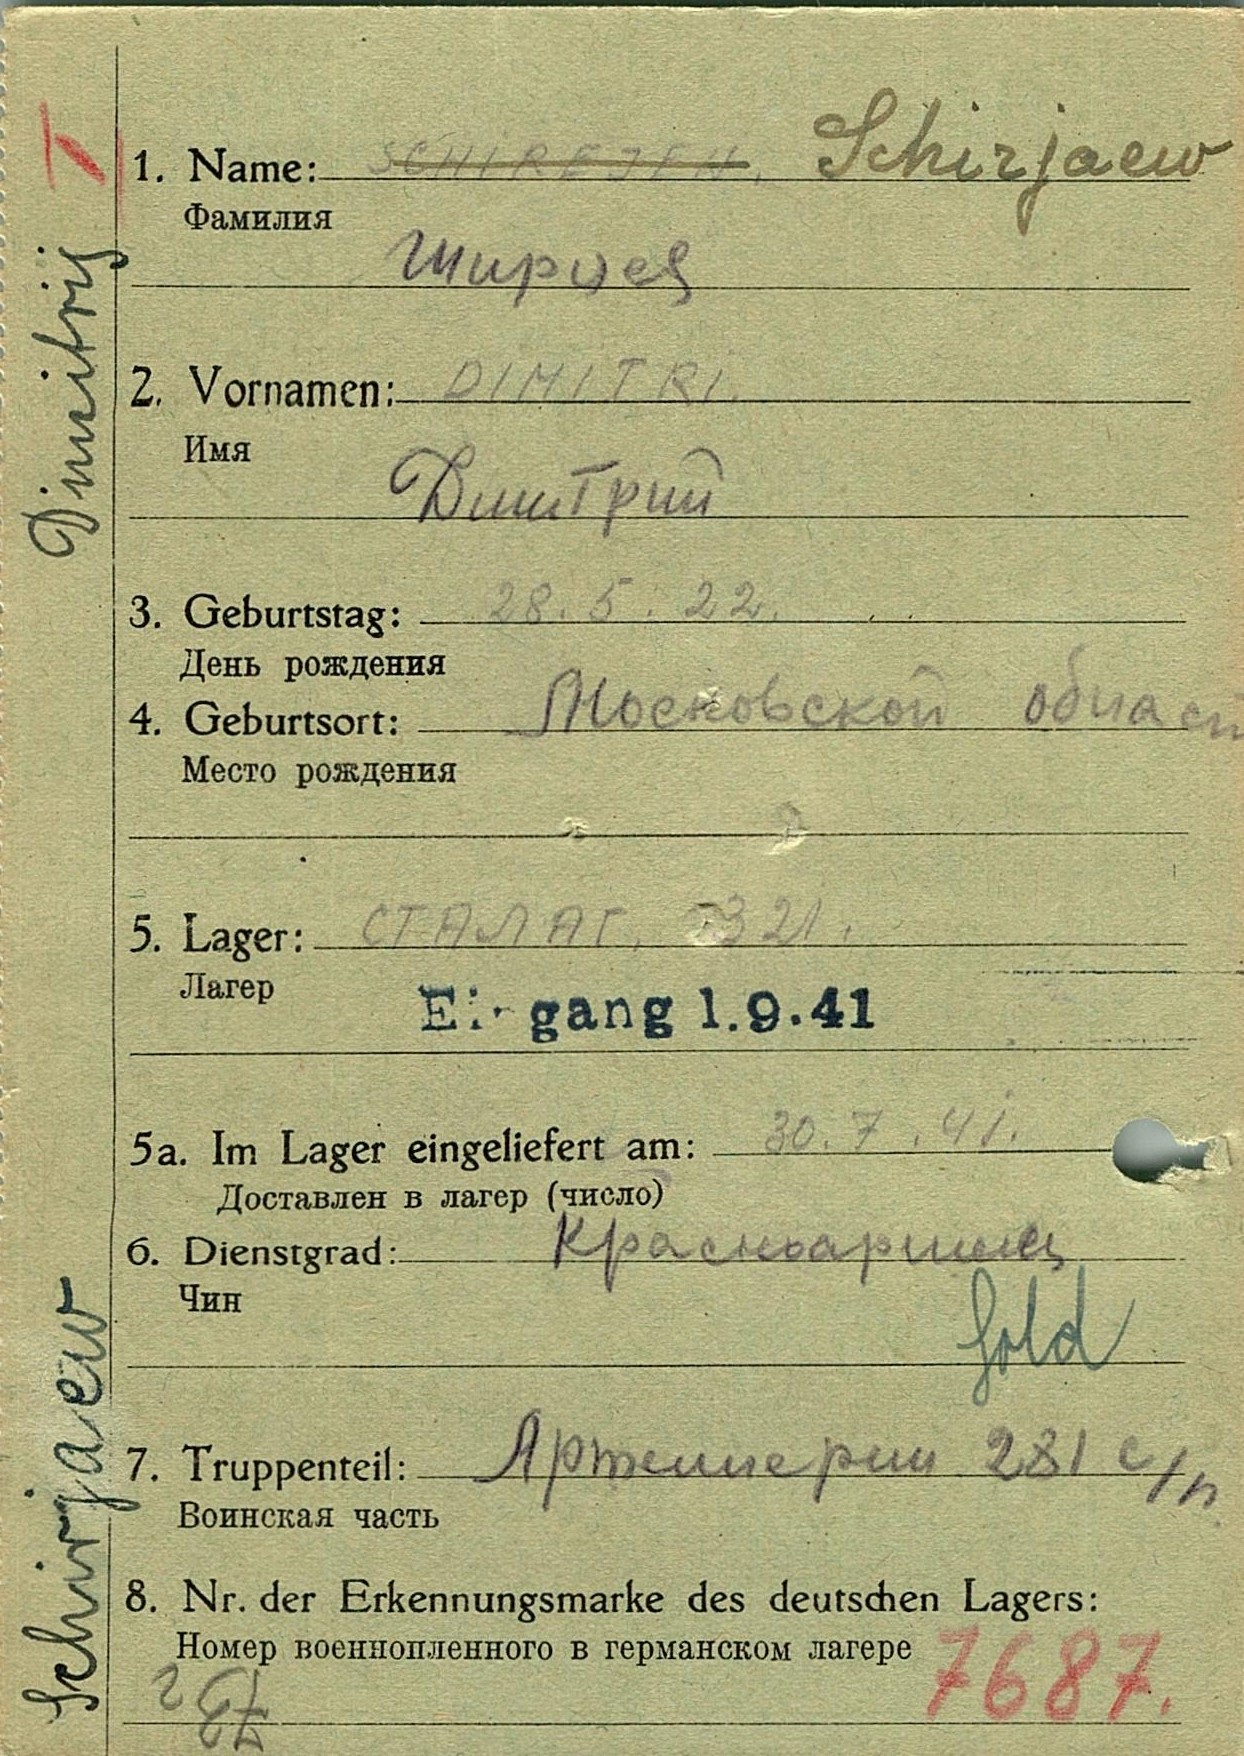 I
1. Name: SCHIREJEN. Schirjaew
Фамилия
Ширяев
2. Vornamen: DIMITRI.
Имя
Дмитрий
3. Geburtstag: 28.5.22.
День рождения
4. Geburtsort: Московской област
Место рождения
5. Lager: СТАЛАГ. 321.
Лагер
Eingang 1.9.41
5a. Im Lager eingeliefert am: 30.7.41.
Доставлен в лагер (число)
6. Dienstgrad: Красноармеец
Чин
Sold
7. Truppenteil: Артиллерии 281 с/п.
Воинская часть
8. Nr. der Erkennungsmarke des deutschen Lagers:
Номер военнопленного в германском лагере 7687.
Schirjaew Dimitrij